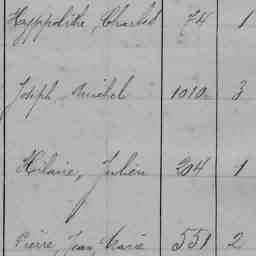 Hyppolithe, Charles 74 1
Joseph Michel 1010 3
Hilaire, Julien 204 1
Pierre, Jean Marie 551 2